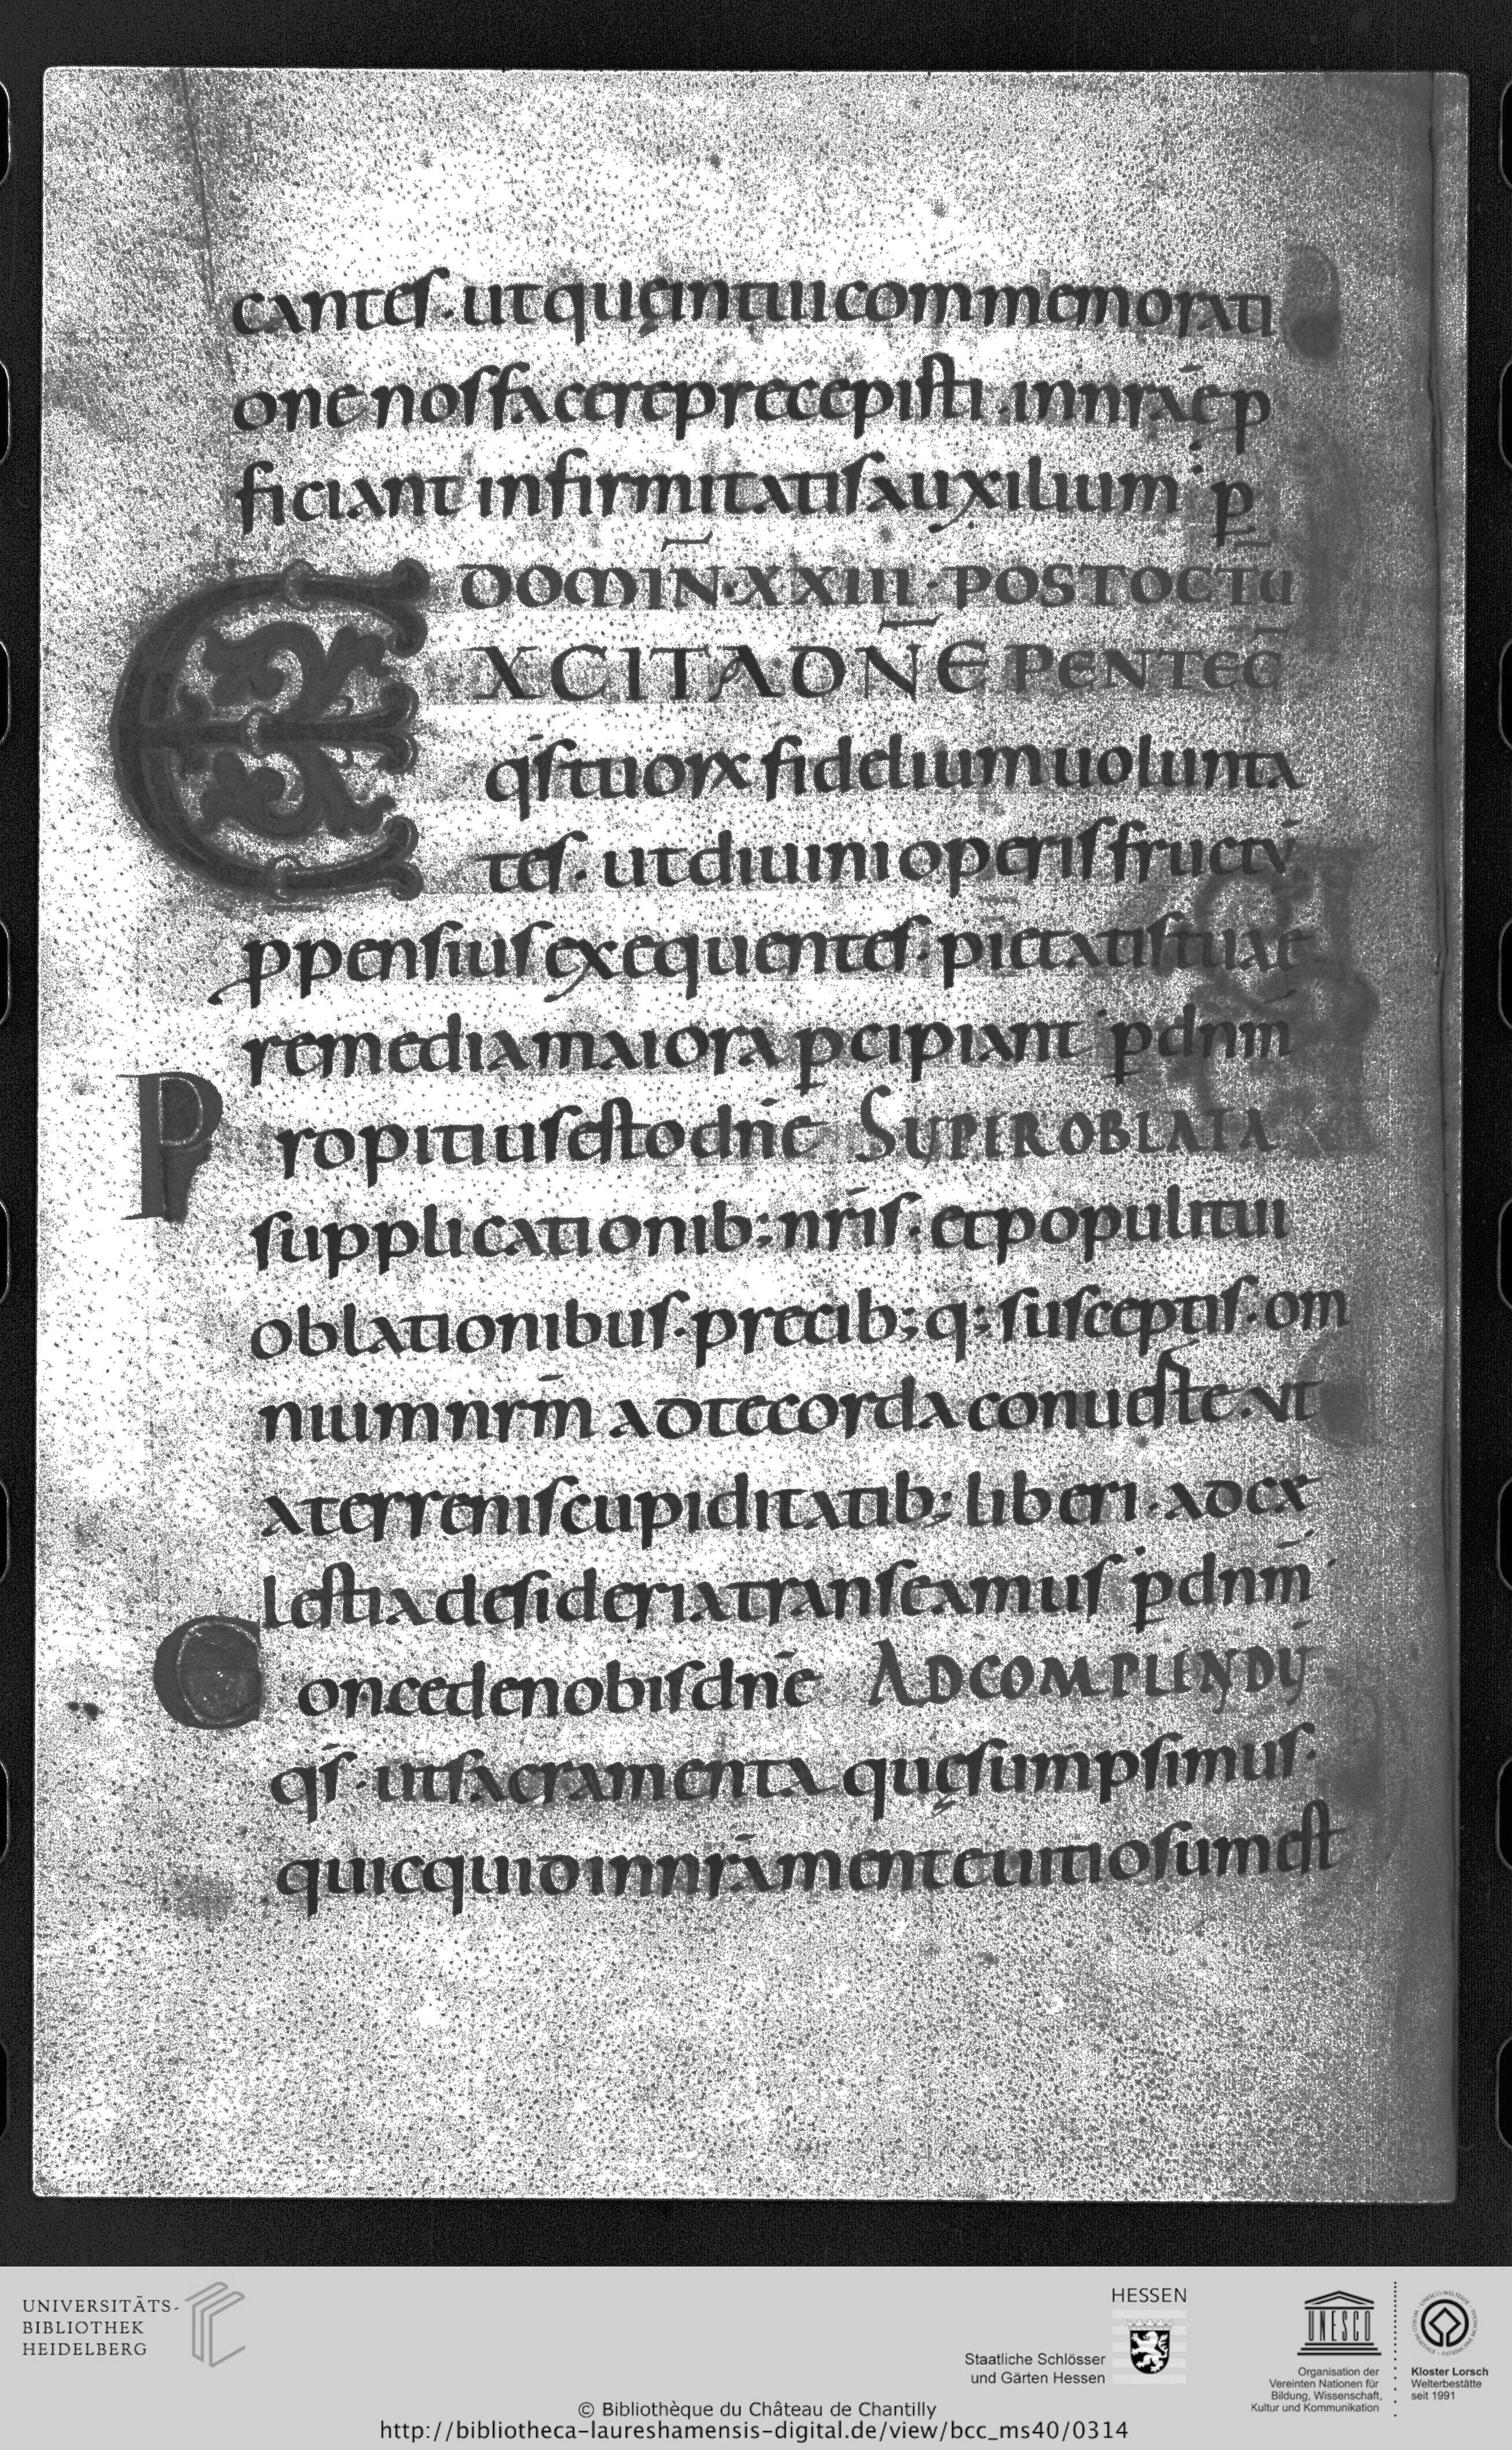 cantes. ut quę in tui commemorati
one nos facere precepisti. in nr̄ae p̱
ficiant infirmitatis auxilium. p̱
DOMIN̄·XXIIII·POST OCTU
EXCITA DON̄E PENTEC̄
qs̄ tuorꝝ fidelium uolunta
tes. ut diuini operis fructū
ꝓpensius exequentes. pietatis tuae
remedia maiora ꝑcipiant ꝑ dnm̄
Propitius esto dnē SUPER OBLATA
supplicationib; nrīs. et populi tui
oblationibus. precib; q; susceptis. om
nium nrm̄ ad te corda conuerte. ut
a terrenis cupiditatib; liberi. ad cae
lestia desideria transeamus ꝑ dnm̄
Concede nobis dnē AD COMPLENDŪ
qs̄. ut sacramenta quę sumpsimus.
quicquid in nrā mente uitiosum est
UNIVERSITÄTS-
BIBLIOTHEK
HEIDELBERG
HESSEN
Staatliche Schlösser
und Gärten Hessen
UNESCO
Organisation der
Vereinten Nationen für
Bildung, Wissenschaft,
Kultur und Kommunikation
Kloster Lorsch
Welterbestätte
seit 1991
© Bibliothèque du Château de Chantilly
http://bibliotheca-laureshamensis-digital.de/view/bcc_ms40/0314